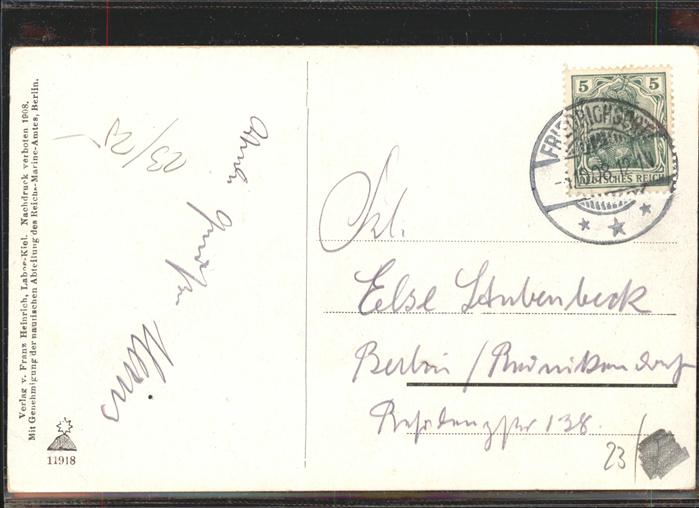 Verlag v. Franz Heinrich, Laboe-Kiel. Nachdruck verboten 1908.
Mit Genehmigung der nautischen Abteilung des Reichs-Marine-Amtes, Berlin.
11918
23/
5 5
DEUTSCHES REICH
FRIEDRICHSORT
Frl.
Else Stubenbeck
Berlin / Reinickendorf
Residenzstr 138.
23/